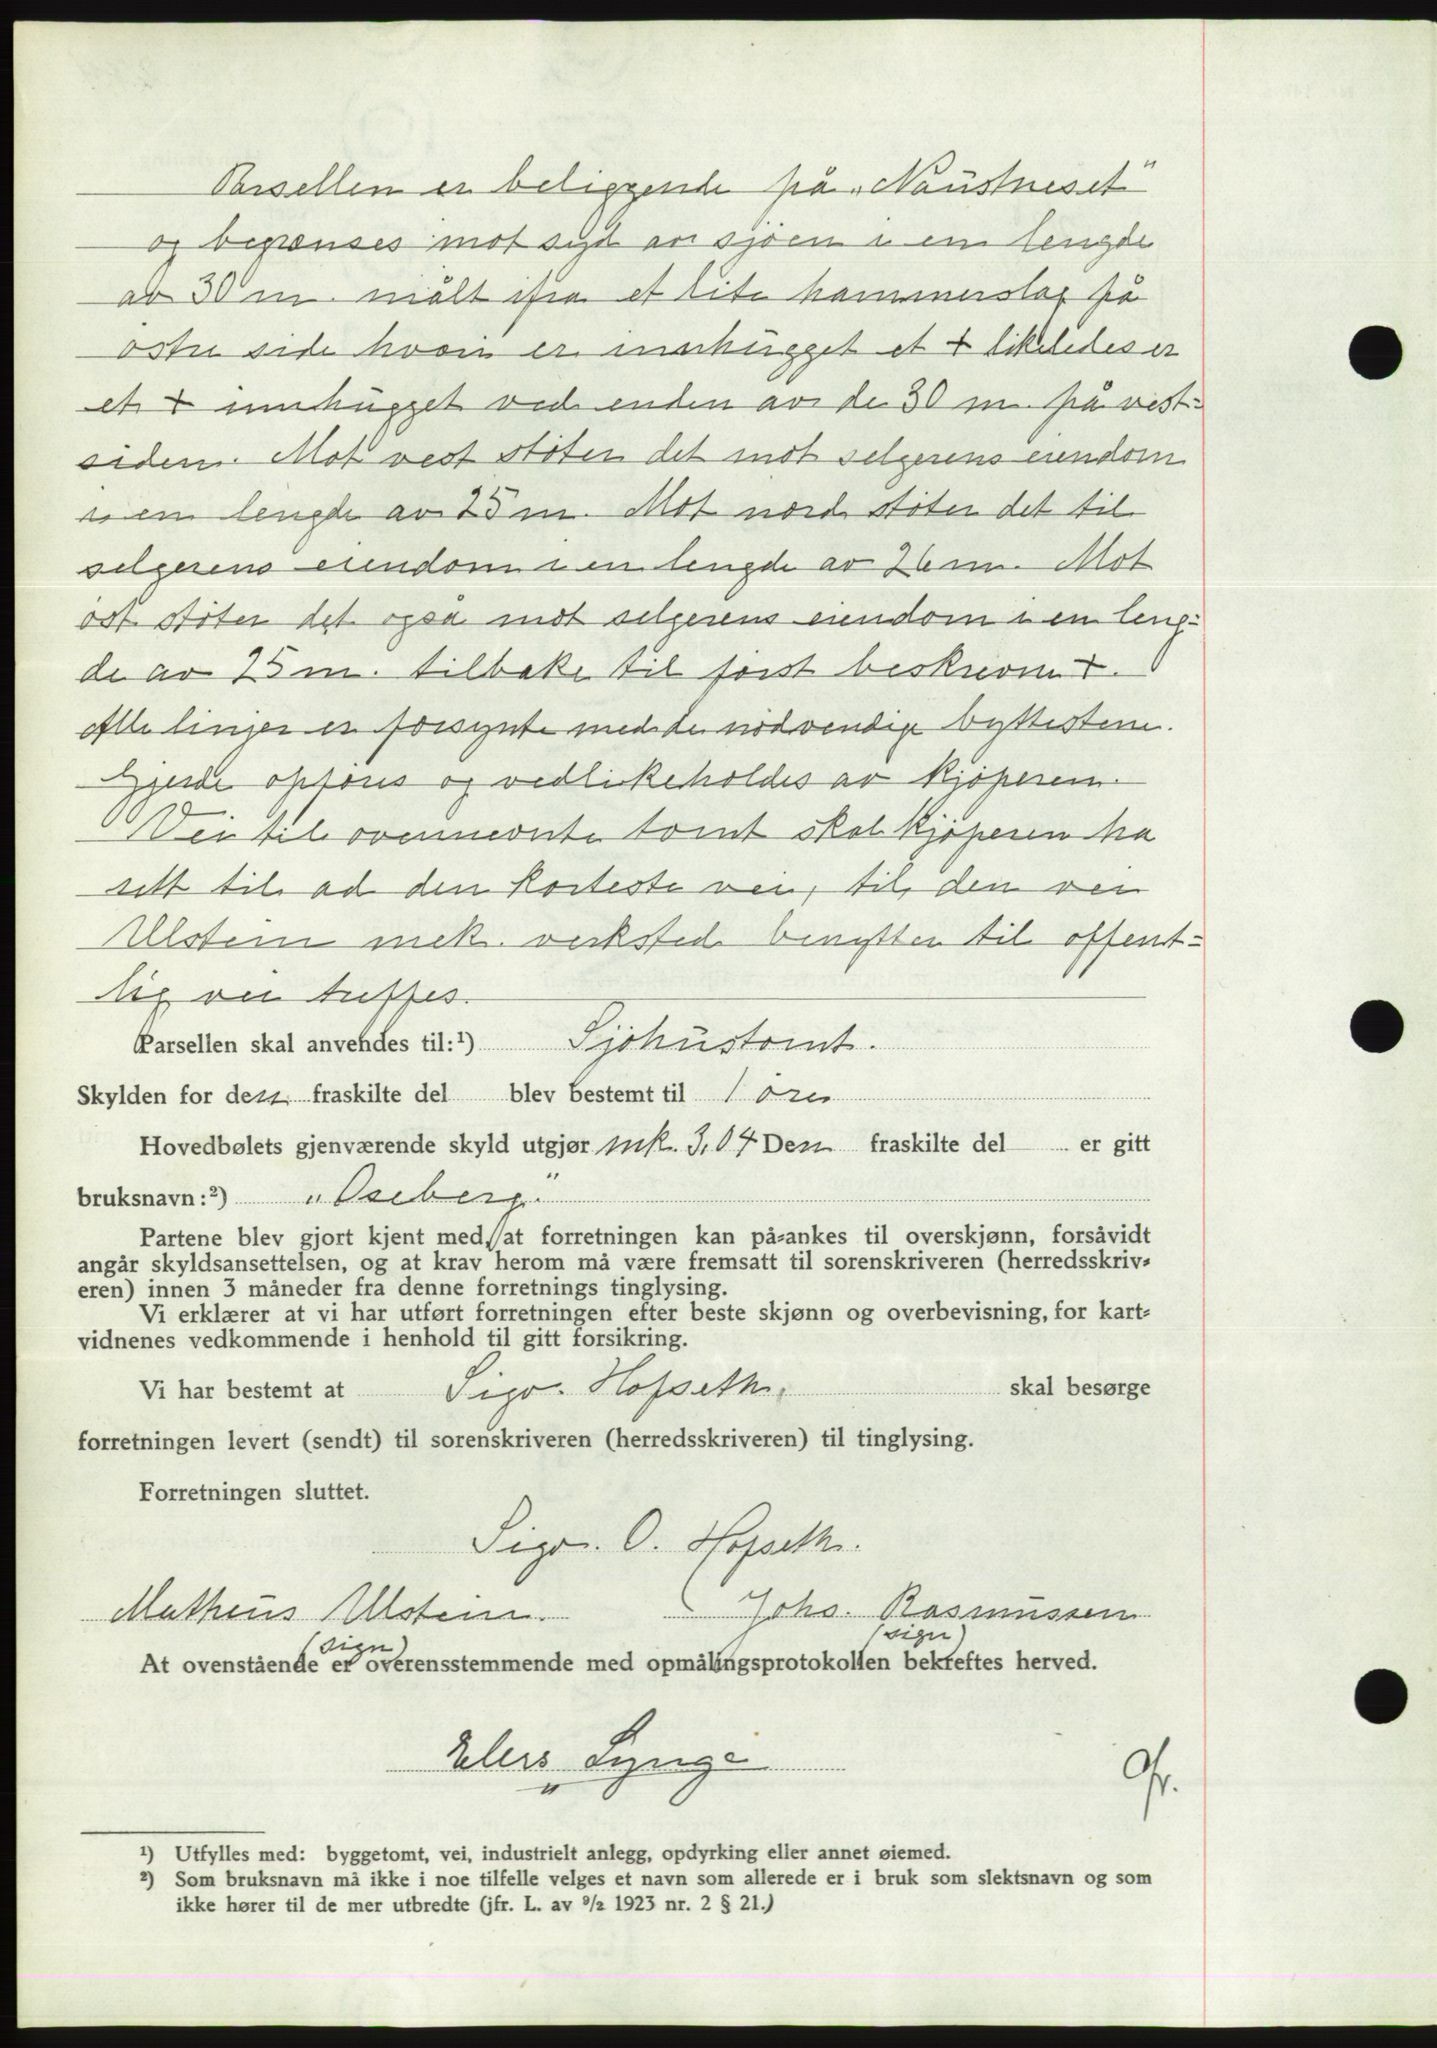 Parsellen er beliggende på „Naustneset"
og begrenses mot syd av sjøen i en lengde
av 30 m. målt ifra et lite hammerslag på
østre side hvori er innhugget et + likeledes er
et + innhugget ved enden av de 30 m. på vest-
siden. Mot vest støter det mot selgerens eiendom
i en lengde av 25 m. Mot nord støter det til
selgerens eiendom i en lengde av 26 m. Mot
øst støter det også mot selgerens eiendom i en leng-
de av 25 m. tilbake til først beskrevne +.
Alle linjer er forsynte med de nødvendige byttestene.
Gjerde opføres og vedlikeholdes av kjøperen.
Vei til ovennevnte tomt skal kjøperen ha
rett til ad den korteste vei, til den vei
Ulstein mek. verksted benytter til offent-
lig vei treffes.
Parsellen skal anvendes til:¹) Sjøhustomt.
Skylden for den fraskilte del blev bestemt til 1 øre
Hovedbølets gjenværende skyld utgjør mk. 3,04 Den fraskilte del er gitt
bruksnavn:²) „Oseberg".
Partene blev gjort kjent med, at forretningen kan på-ankes til overskjønn, forsåvidt
angår skyldsansettelsen, og at krav herom må være fremsatt til sorenskriveren (herredsskriv-
eren) innen 3 måneder fra denne forretnings tinglysing.
Vi erklærer at vi har utført forretningen efter beste skjønn og overbevisning, for kart-
vidnenes vedkommende i henhold til gitt forsikring.
Vi har bestemt at Sigv. Hofseth, skal besørge
forretningen levert (sendt) til sorenskriveren (herredsskriveren) til tinglysing.
Forretningen sluttet.
Sigv. O. Hofseth.
Matheus Ulstein. Johs. Rasmussen
(sign) (sign)
At ovenstående er overensstemmende med opmålingsprotokollen bekreftes herved.
Elers Synge
¹) Utfylles med: byggetomt, vei, industrielt anlegg, opdyrking eller annet øiemed.
²) Som bruksnavn må ikke i noe tilfelle velges et navn som allerede er i bruk som slektsnavn og som
ikke hører til de mer utbredte (jfr. L. av ⁹/₂ 1923 nr. 2 § 21.)